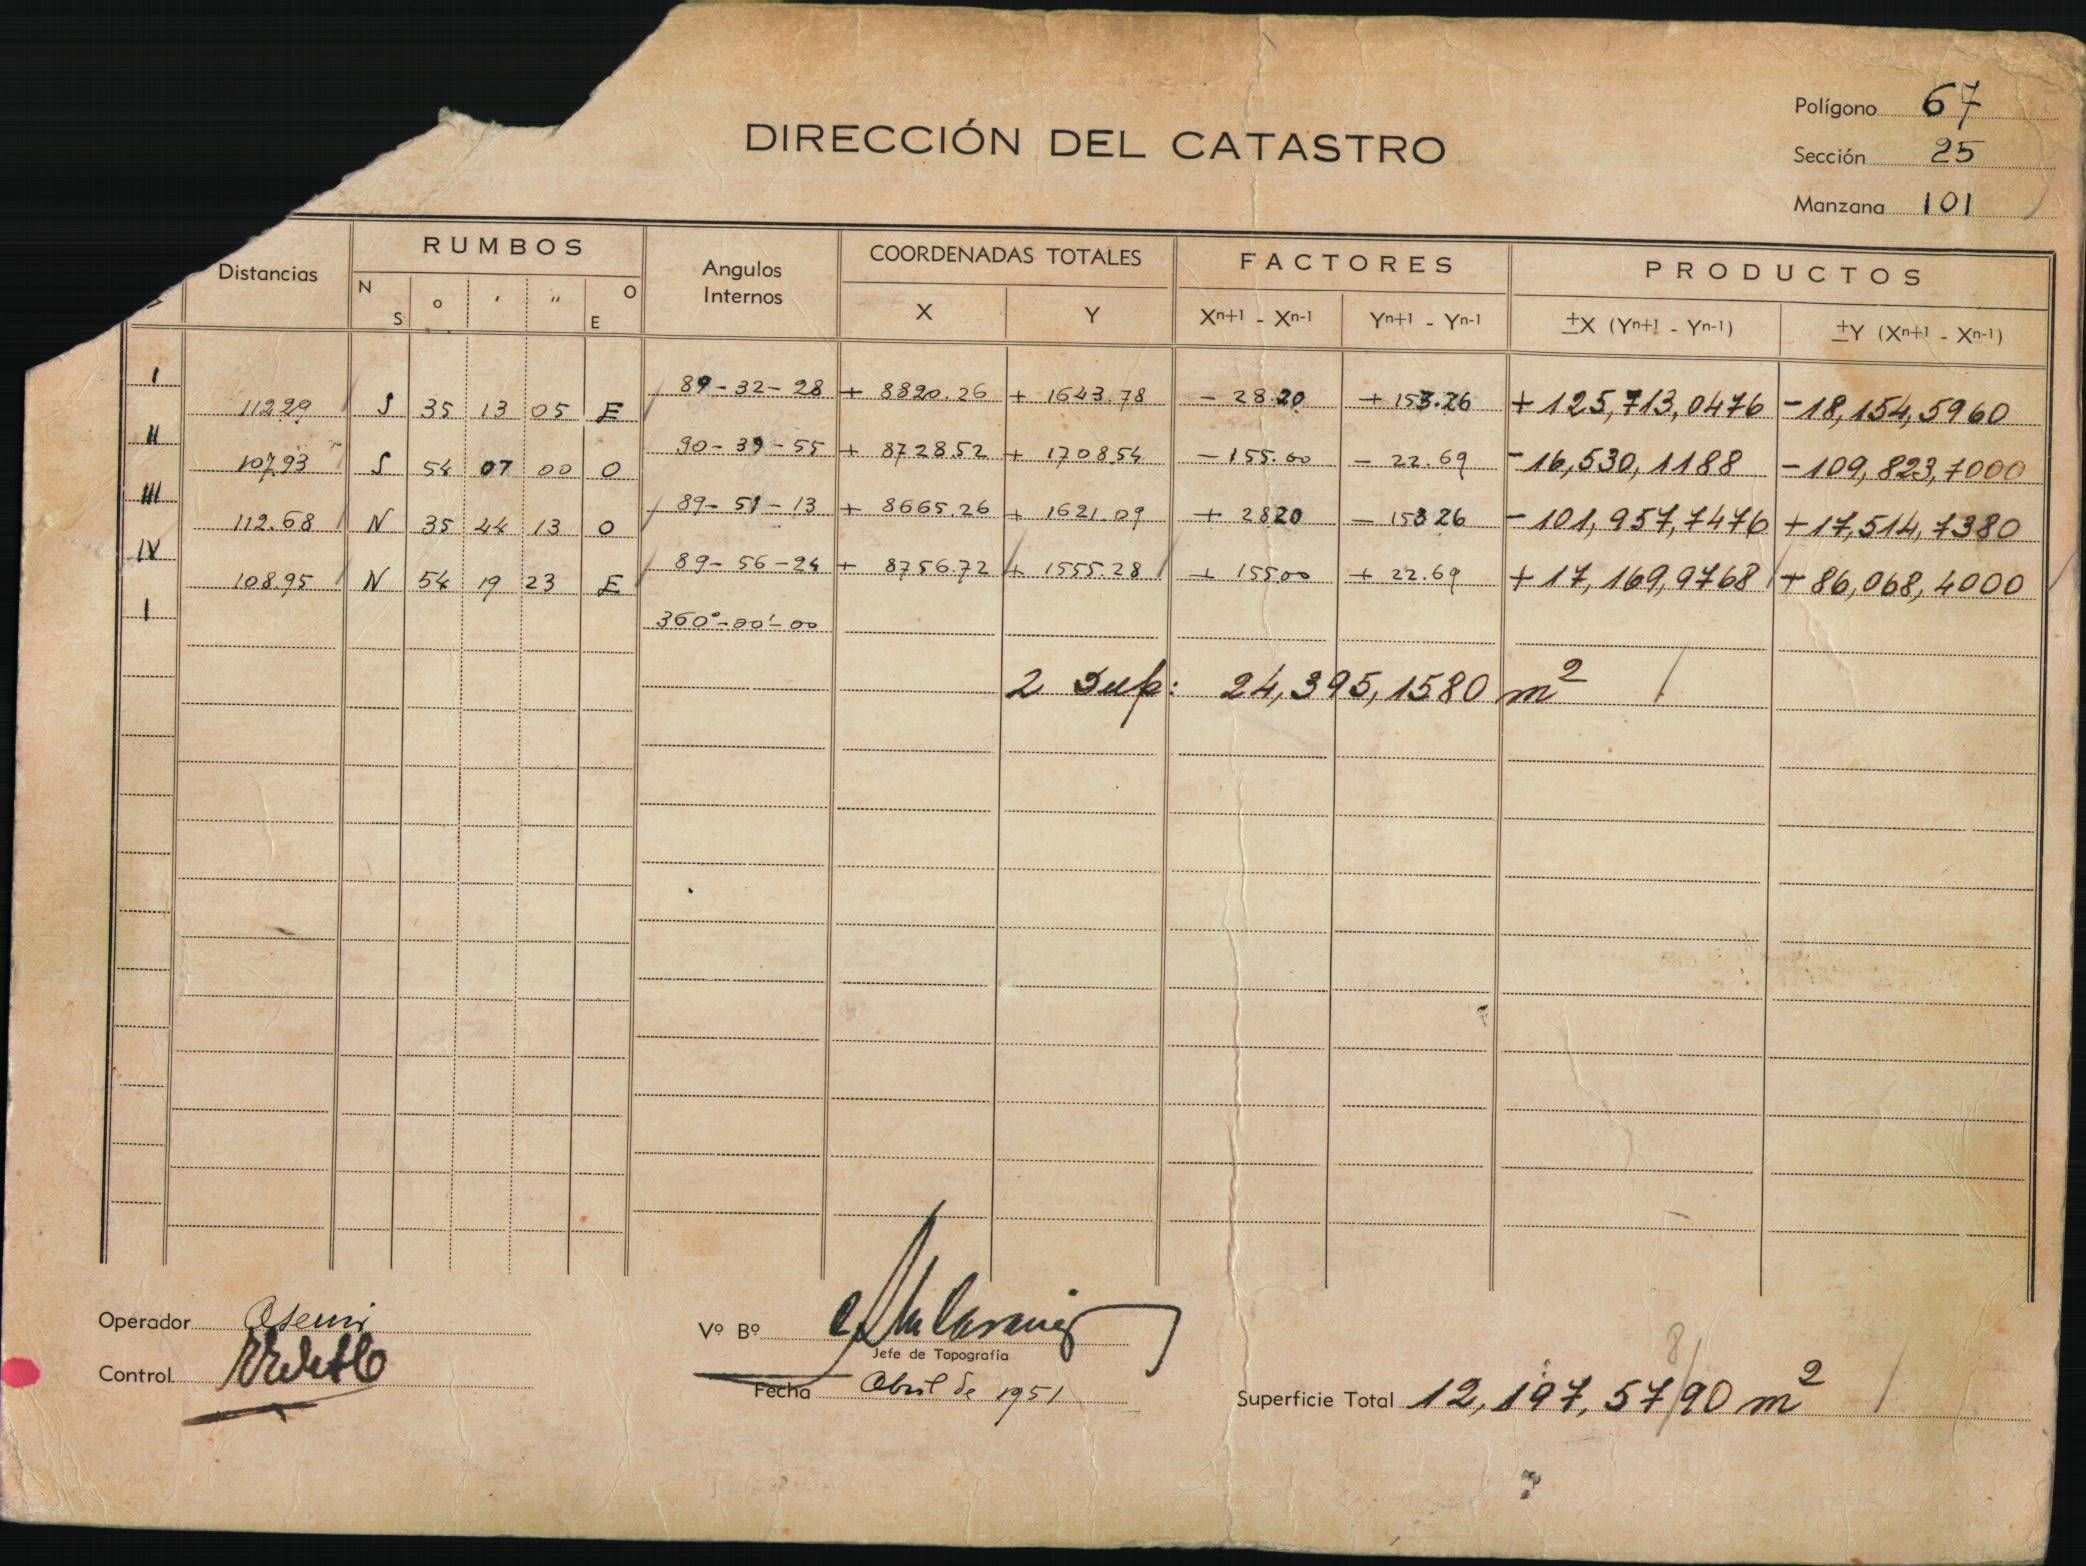 DIRECCIÓN DEL CATASTRO
Polígono 67
Sección 25
Manzana 101
Distancias RUMBOS Angulos Internos COORDENADAS TOTALES FACTORES PRODUCTOS
N S o ' " O E X Y Xn+1 - Xn-1 Yn+1 - Yn-1 ±X (Yn+1 - Yn-1) ±Y (Xn+1 - Xn-1)
I 89-32-28 + 8820.26 + 1643.78 - 28.20 + 153.26 + 125,713,0476 - 18,154,5960
112.29 S 35 13 05 E
II 90-39-55 + 8728.52 + 1708.54 - 155.00 - 22.69 - 16,530,1188 - 109,823,7000
107.93 S 54 07 00 O
III 89-51-13 + 8665.26 + 1621.09 + 28.20 - 153.26 - 101,957,7476 + 17,514,7380
112.68 N 35 44 13 O
IV 89-56-24 + 8756.72 + 1555.28 + 155.00 + 22.69 + 17,169,9768 + 86,068,4000
108.95 N 54 19 23 E
I 360°-00'-00
2 Sup: 24,395,1580 m²
Operador
Control
Vº Bº
Jefe de Topografía
Fecha Abril de 1951
8
Superficie Total 12,197,5790 m²